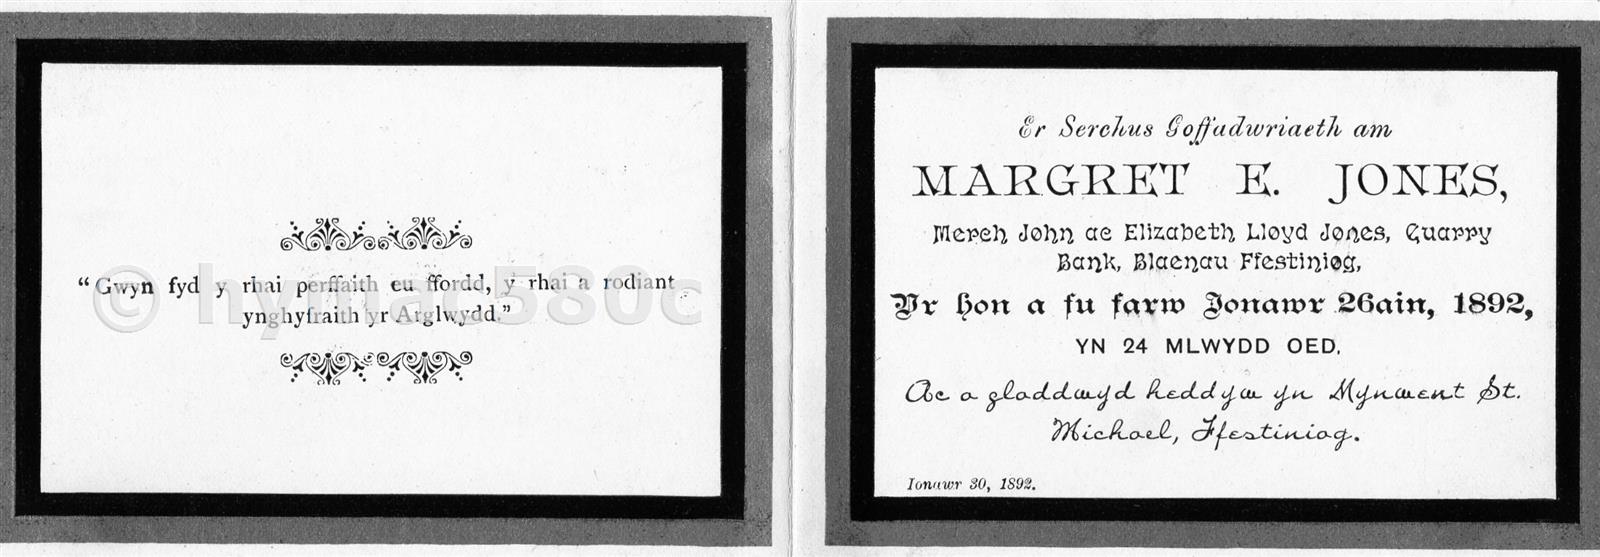 "Gwyn fyd y rhai perffaith eu ffordd, y rhai a rodiant
ynghyfraith yr Arglwydd."
© hymac580c
Er Serchus Goffadwriaeth am
MARGRET E. JONES,
Merch John ac Elizabeth Lloyd Jones, Quarry
Bank, Blaenau Ffestiniog,
Yr hon a fu farw Ionawr 26ain, 1892,
YN 24 MLWYDD OED,
Ac a gladdwyd heddyw yn Mynwent St.
Michael, Ffestiniog.
Ionawr 30, 1892.